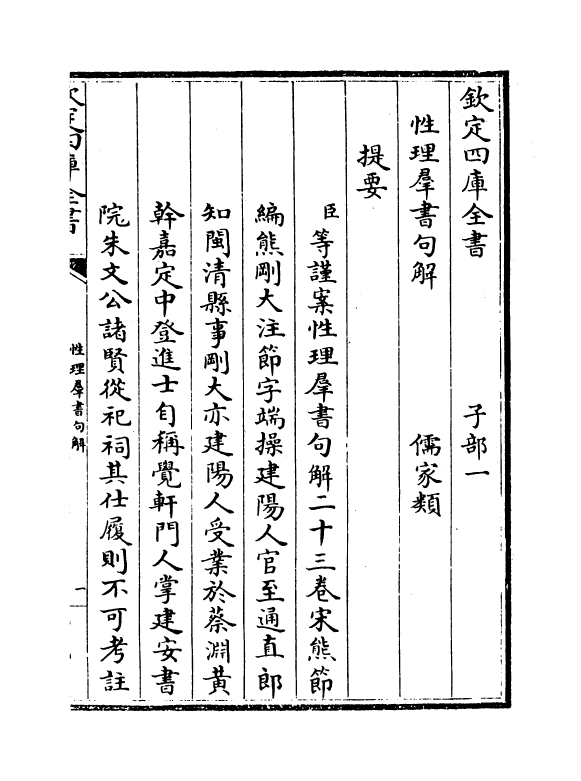 欽定四庫全書　子部一
性理羣書句解　儒家類
提要
臣等謹案性理羣書句解二十三卷宋熊節
編熊剛大注節字端操建陽人官至通直郎
知閩清縣事剛大亦建陽人受業於蔡淵黃
榦嘉定中登進士自稱覺軒門人掌建安書
院朱文公諸賢從祀祠其仕履則不可考註
欽定四庫全書
性理羣書句解
一